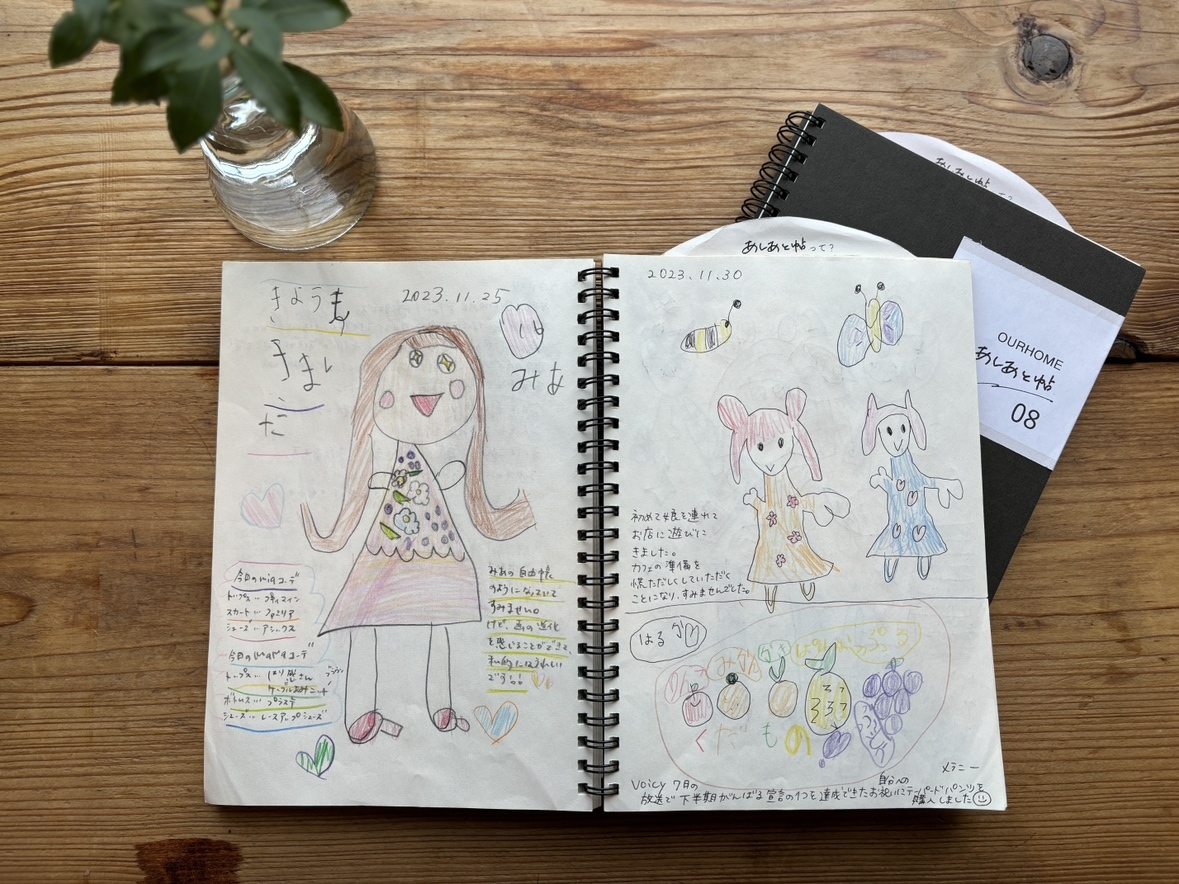 きょうも
きまし
た
2023.11.25
みあ
今日のmiaコーデ
トップス…
スカート…ファミリア
シューズ…アシックス
今日の
トップス…
ケーブルあみニット
ボトムス…プラステ
シューズ…レースアップシューズ
みあの自由帳
のようになっていて
すみません。
けど、画の進化
を感じることができて、
私的にはうれしい
です!!
2023.11.30
初めて娘を連れて
お店に遊びに
きました。
カフェの準備を
慌ただしくしていただく
ことになり、すみませんでした。
はるか
りんご
みかん
かき
ぱいなっぷる
ぶどう
くだもの
メラニー
Voicy 7月の
放送で下半期がんばる宣言の1つを達成できた自分へのお祝いにテーパードパンツを
購入しました
あしあと帖って?
あしあと帖って?
OURHOME
あしあと帖
08